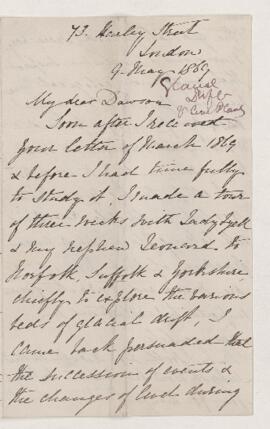 73. Harley Street
London
9. May 1869
Glacial
Drift
& Coal Plants
My dear Dawson
Soon after I received
your letter of March 1869
& before I had time fully
to study it, I made a tour
of three weeks with Lady Lyell
& my nephew Leonard to
Norfolk, Suffolk & Yorkshire
chiefly to explore the various
beds of glacial drift. I
came back persuaded that
the succession of events &
the changes of level during